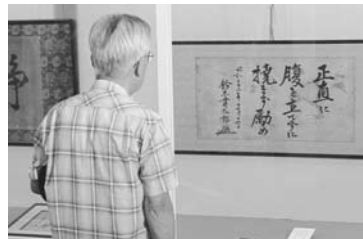 正直に
腹を立てずに
撓まず励め
鈴木貫太郎